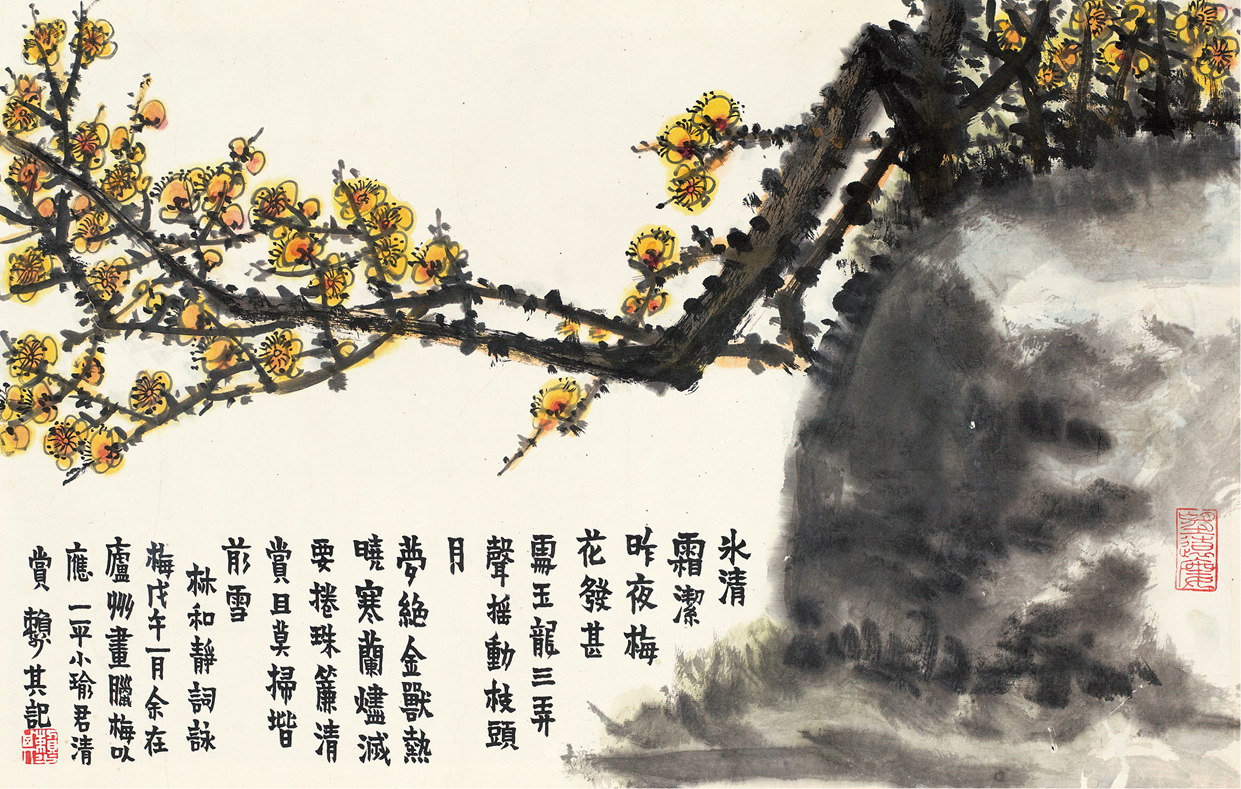 氷清
霜潔
昨夜梅
花發甚
處玉龍三弄
聲摇動枝頭
月
夢絶金獸熱
曉寒蘭燼滅
要捲珠簾清
賞且莫掃堦
前雪
林和靜詞詠
梅戊午一月余在
廬州畫臘梅以
應一平小瑜君清
賞 賴少其記